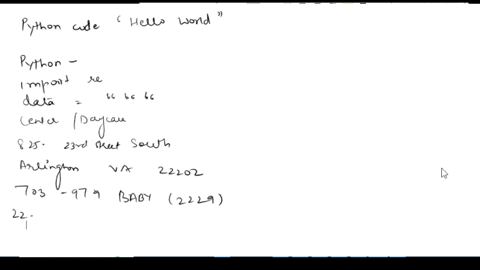 Python code "Hello World"
Python -
import re
data = " " "
Center / Daycare
825. 23rd Street South
Arlington VA 22202
703 - 979 BABY (2229)
22.